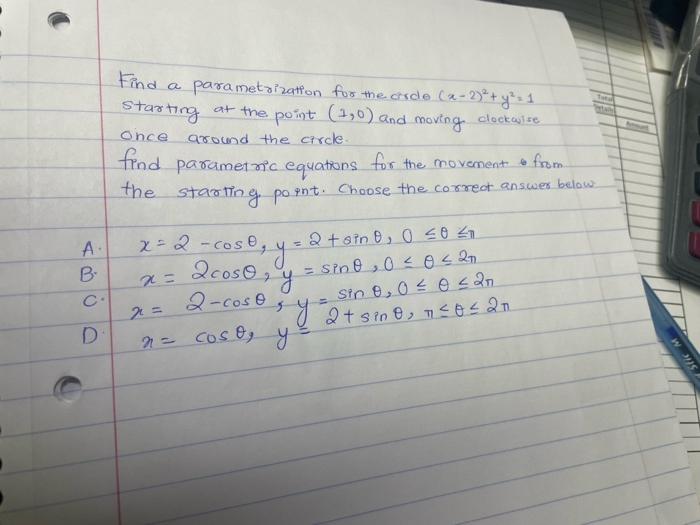 Find a parametrization for the circle (x-2)²+y²=1
starting at the point (1,0) and moving clockwise
once around the circle.
find parametric equations for the movement from
the starting point. Choose the correct answer below
A. x = 2 - cosθ, y = 2 + sinθ, 0 ≤ θ ≤ π
B. x = 2cosθ, y = sinθ, 0 ≤ θ ≤ 2π
C. x = 2-cosθ, y = sinθ, 0 ≤ θ ≤ 2π
D. x = cosθ, y = 2 + sinθ, π ≤ θ ≤ 2π
Total
Amount